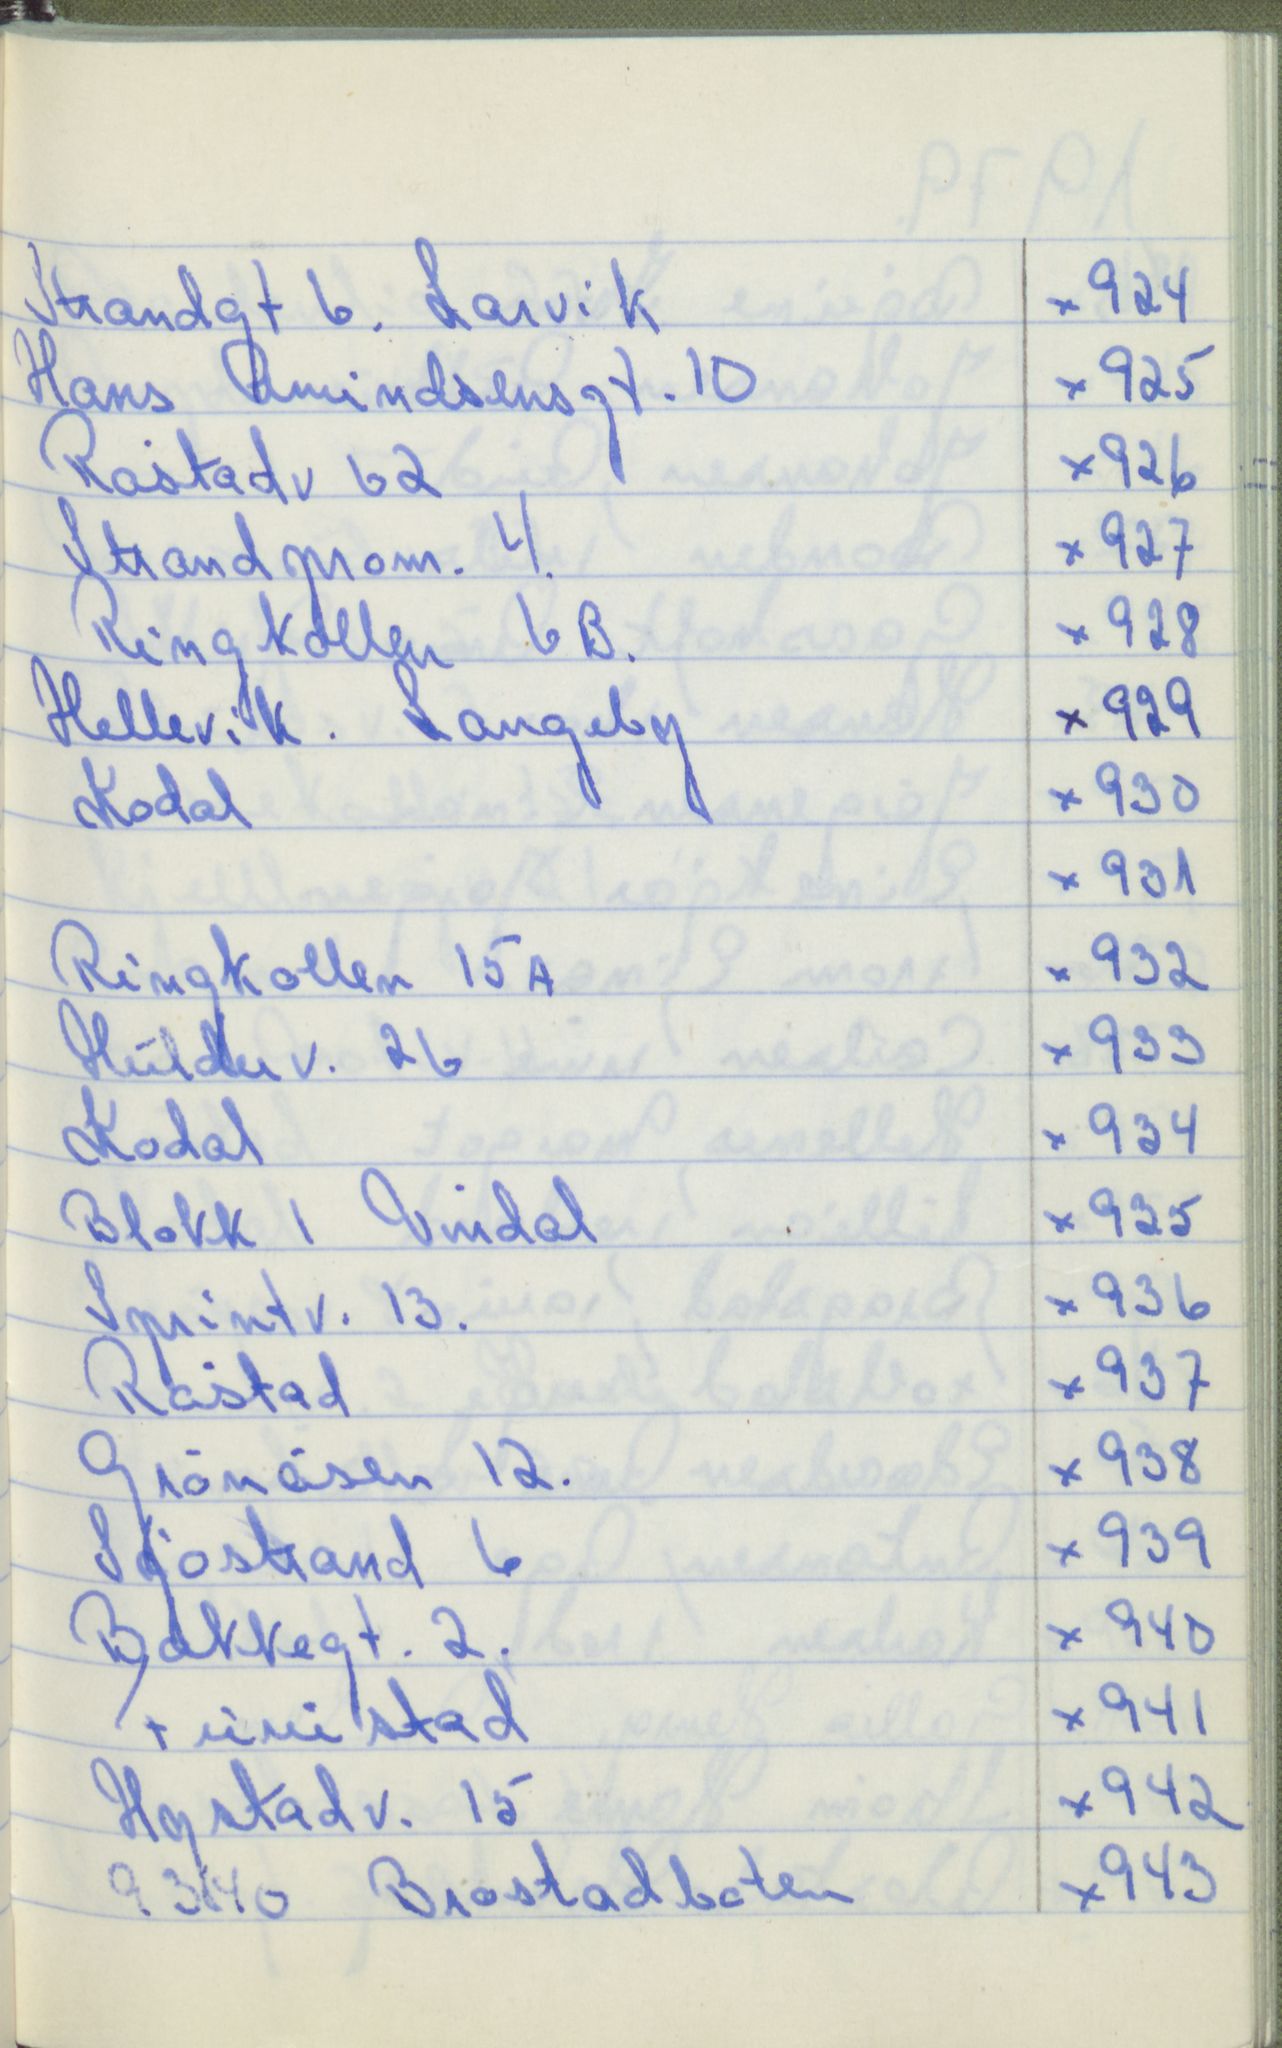 Strandgt 6. Larvik x 924
Hans Amindsensgt. 10 x 925
Råstadv 62 x 926
Strandprom. 4. x 927
Ringkollen 6 B. x 928
Hellevik. Langeby x 929
Kodal x 930
x 931
Ringkollen 15 A x 932
Hulduv. 26 x 933
Kodal x 934
Blokk 1 Vindal x 935
Sprintv. 13. x 936
Råstad x 937
Grönåsen 12. x 938
Sjöstrand 6 x 939
Bjakkegt. 2. x 940
x 941
Hystadv. 15 x 942
Brostadboten x 943